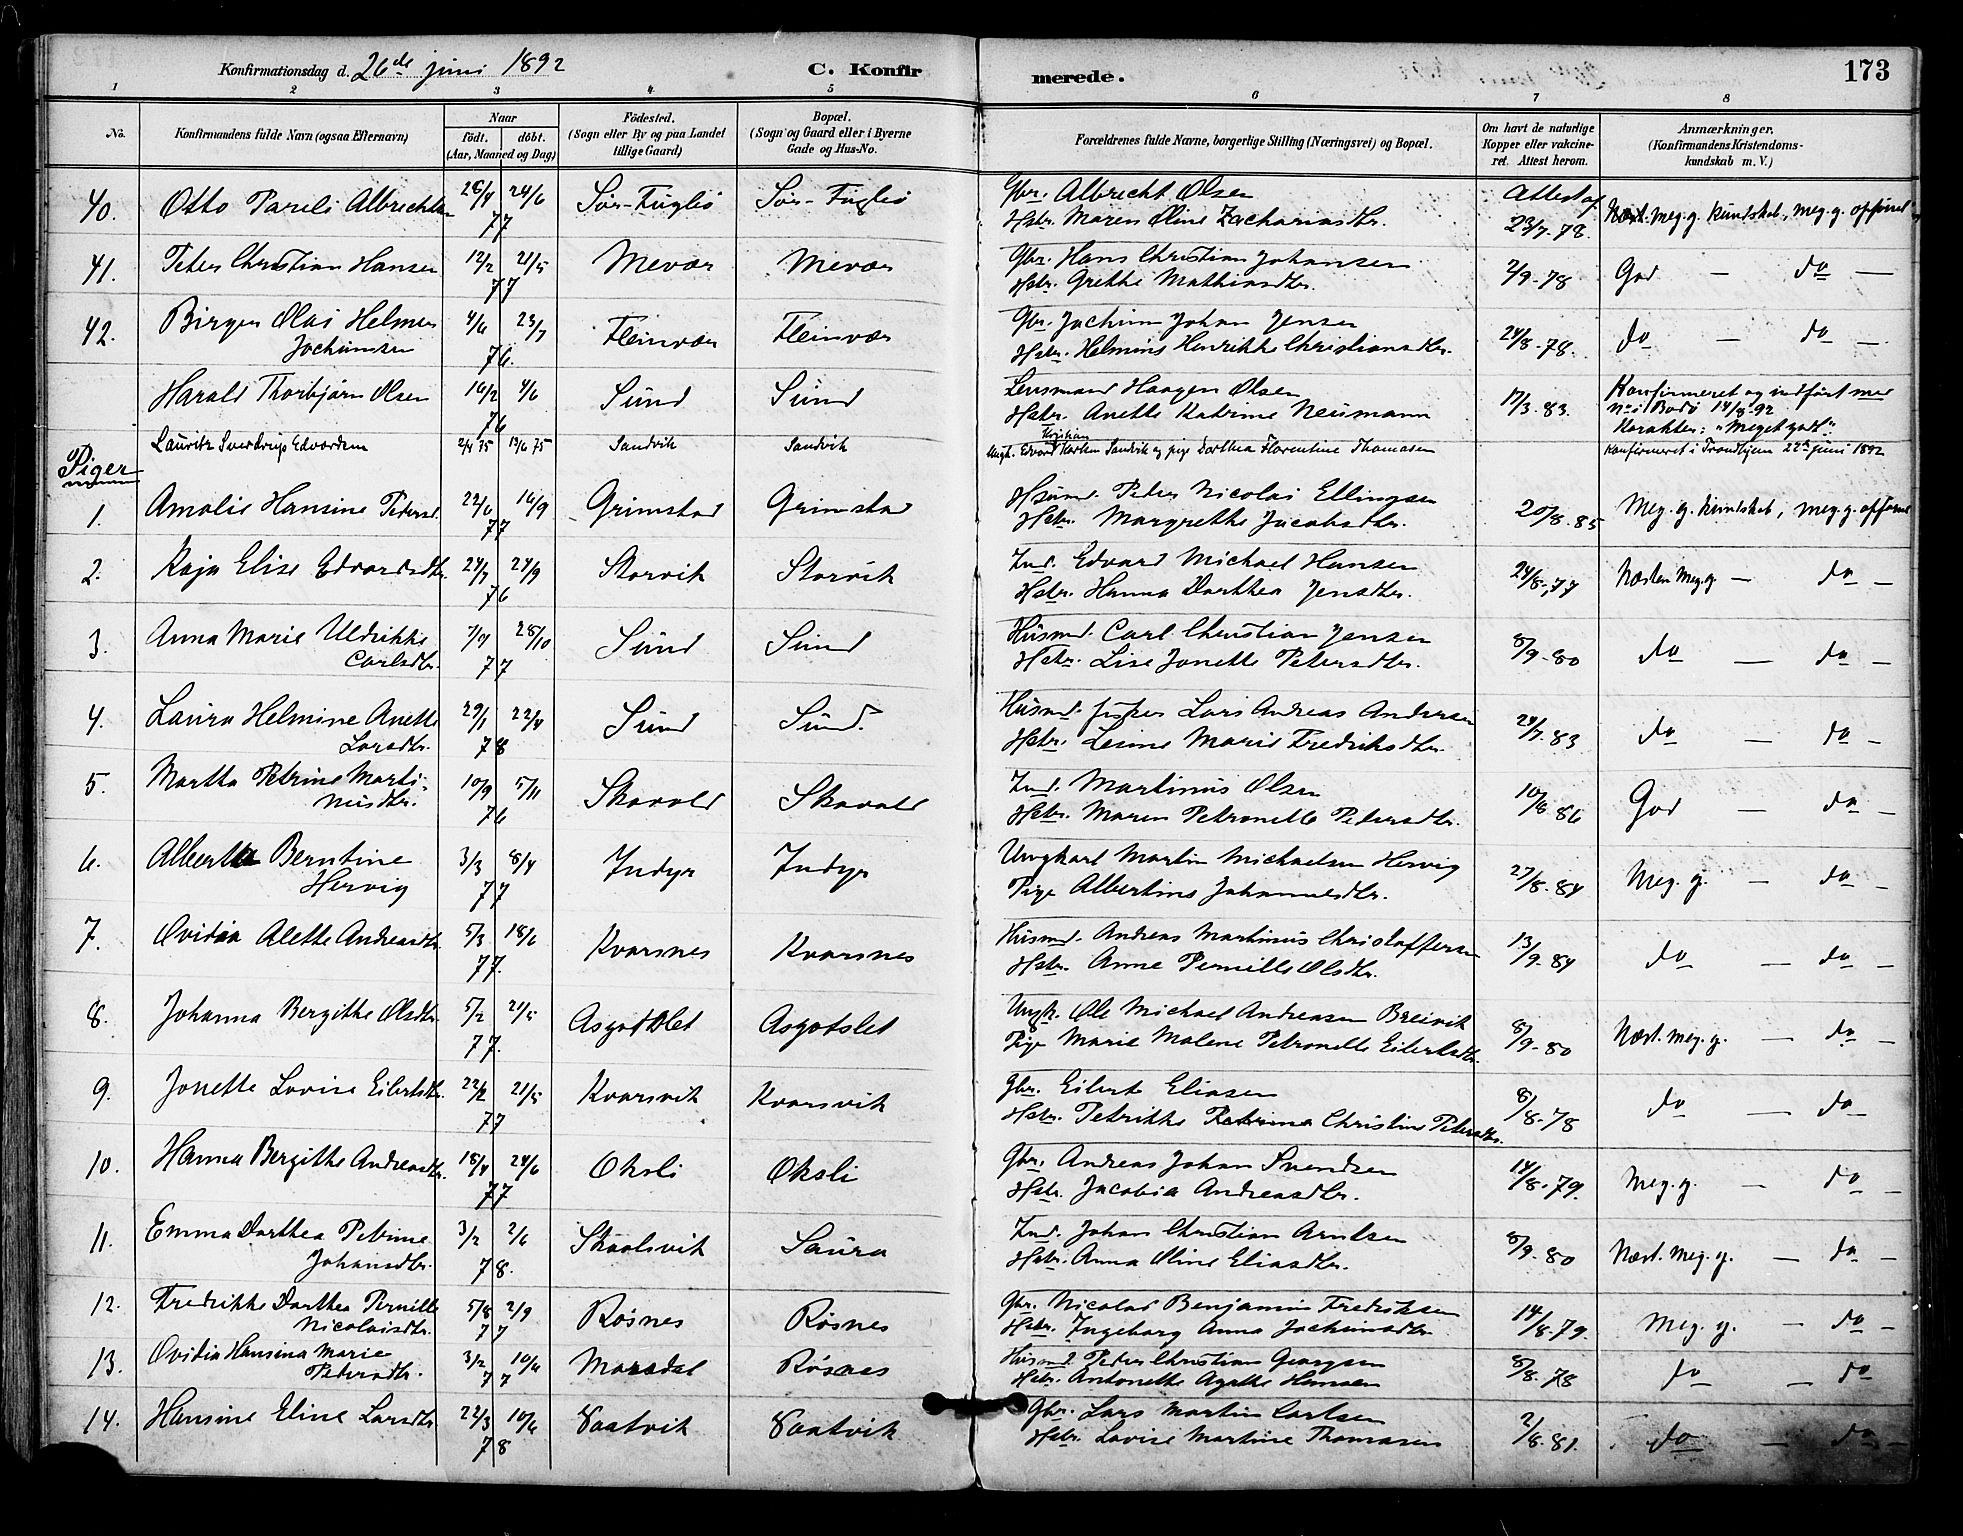 Konfirmationsdag d. 26de juni 1892
C. Konfirmerede.
173
1 2 3 4 5 6 7 8
No. Konfirmandens fulde Navn (ogsaa Efternavn) Naar født. døbt. (Aar, Maaned og Dag) Fødested. (Sogn eller By og paa Landet tillige Gaard) Bopæl. (Sogn og Gaard eller i Byerne Gade og Hus-No. Forældrenes fulde Navne, borgerlige Stilling (Næringsvei) og Bopæl. Om havt de naturlige Kopper eller vakcineret. Attest herom. Anmærkninger. (Konfirmandens Kristendomskundskab m. V.)
40. Otto Pareli Albrechtsen 26/4 24/6 77 Sør-Fuglø Sør-Fuglø Gbr. Albrecht Olsen Attest af Næst. meg. g. kundskab, meg. g. opførsel
Hstr. Maren Oline Zachariasdtr. 23/7-78.
41. Peter Christian Hansen 12/2 21/5 77 Mevær Mevær Gbr. Hans Christian Johansen 2/9-78 God — do —
Hstr. Grethe Mathiasdtr.
42. Birger Olai Helmer 4/6 23/7 76. Fleinvær Fleinvær Gbr. Jochim Johan Jensen 24/8-78. do — do —
Jochimsen Hstr. Helmine Henrikke Christiansdtr.
Harald Thorbjørn Olsen 16/2 4/6 76 Sund Sund Lensmand Haagen Olsen 17/3.83. Konfirmeret og indført med
Hstr. Anette Katrine Neumann No i Bodø 14/8-92
Karakter: "Meget godt".
Lauritz Sverdrup Edvardsen 2/4 75 13/6 75 Sandvik Sandvik Ungk. Edvard Kristian Karlsen Sandvik og pige Dorthea Florentine Thomasen Konfirmeret i Trondhjem 22de juni 1892
Piger
1. Amalie Hansine Petersd. 22/6 16/9 77 Grimstad Grimstad Husmd. Peter Nicolai Ellingsen 20/8.85 Meg. g. kundskab, meg. g. opførsel
Hstr. Margrethe Jacobsdtr.
2. Kaja Elise Edvardsdtr. 24/7 24/9 76 Storvik Storvik Ind. Edvard Michael Hansen 24/8-77 Næsten meg. g. — do —
Hstr. Hanna Dorthea Jensdtr.
3. Anna Marie Uldrikke 7/9 28/10 77 Sund Sund Husmd. Carl Christian Jensen 8/9-80 do — do —
Carlsdtr. Hstr. Lise Jonette Petersdtr.
4. Laura Helmine Anette 29/1 22/4 78 Sund Sund. Husmd. fisker Lars Andreas Andersen 24/7.83 do — do —
Larsdtr. Hstr. Lesine Marie Fredriksdtr.
5. Martha Petrine Marti- 10/9 5/11 76 Skavold Skavold Ind. Martinus Olsen 10/8 86 God — do —
nusdtr. Hstr. Maren Petronelle Petersdtr.
6. Alberta Berntine 3/3 8/4 77 Indyr Indyr Ungkarl Martin Michaelsen Hervig 27/8.84 Meg. g. — do —
Hervig Pige Albertine Johannesdtr.
7. Ovidia Alette Andreasdtr. 5/3 18/6 77. Kvarsnes Kvarsnes Husmd. Andreas Martinus Christoffersen 13/9.84 do — do —
Hstr. Anne Pernille Olsdtr.
8. Johanna Bergithe Olsdtr. 5/2 21/5 77. Asgotslet Asgotslet Ungk. Ole Michael Andreasen Breivik 8/9-80 Næst. meg. g. — do —
Pige Marie Malene Petronelle Eilertsdtr.
9. Jonette Lovise Eilertsdtr. 22/2 21/5 77 Kvarsvik Kvarsvik Gbr. Eilert Eliasen 8/8-78 do — do —
Hstr. Petrikke Petrina Christine Petersdtr.
10. Hanna Bergithe Andreasdtr. 18/4 24/6 77 Oksli Oksli Gbr. Andreas Johan Svendsen 14/8-79. Meg. g. — do —
Hstr. Jacobia Andreasdtr.
11. Emma Dorthea Petrine 3/2 2/6 78. Skaalsvik Saura Ind. Johan Christian Arntsen 8/9.80 Næst. meg. g. — do —
Johansdtr. Hstr. Anna Oline Eliasdtr.
12. Fredrikke Dorthea Pernille 5/8 2/9 77 Røsnes Røsnes Gbr. Nicolai Benjamin Fredriksen 14/8.79. Meg. g. — do —
Nicolaisdtr. Hstr. Ingeborg Anna Jochimsdtr.
13. Ovidia Hansina Marie 3/2 10/6 77 Morsdal Røsnes Husmd. Peter Christian Georgsen 8/8.78 do — do
Petersdtr. Hstr. Antonette Agathe Hansen
14. Hansine Eline Larsdtr. 22/3 10/6 78 Vaatvik Vaatvik Gbr. Lars Martin Carlsen 2/8.81. do — do —
Hstr. Lovise Martine Thomasen